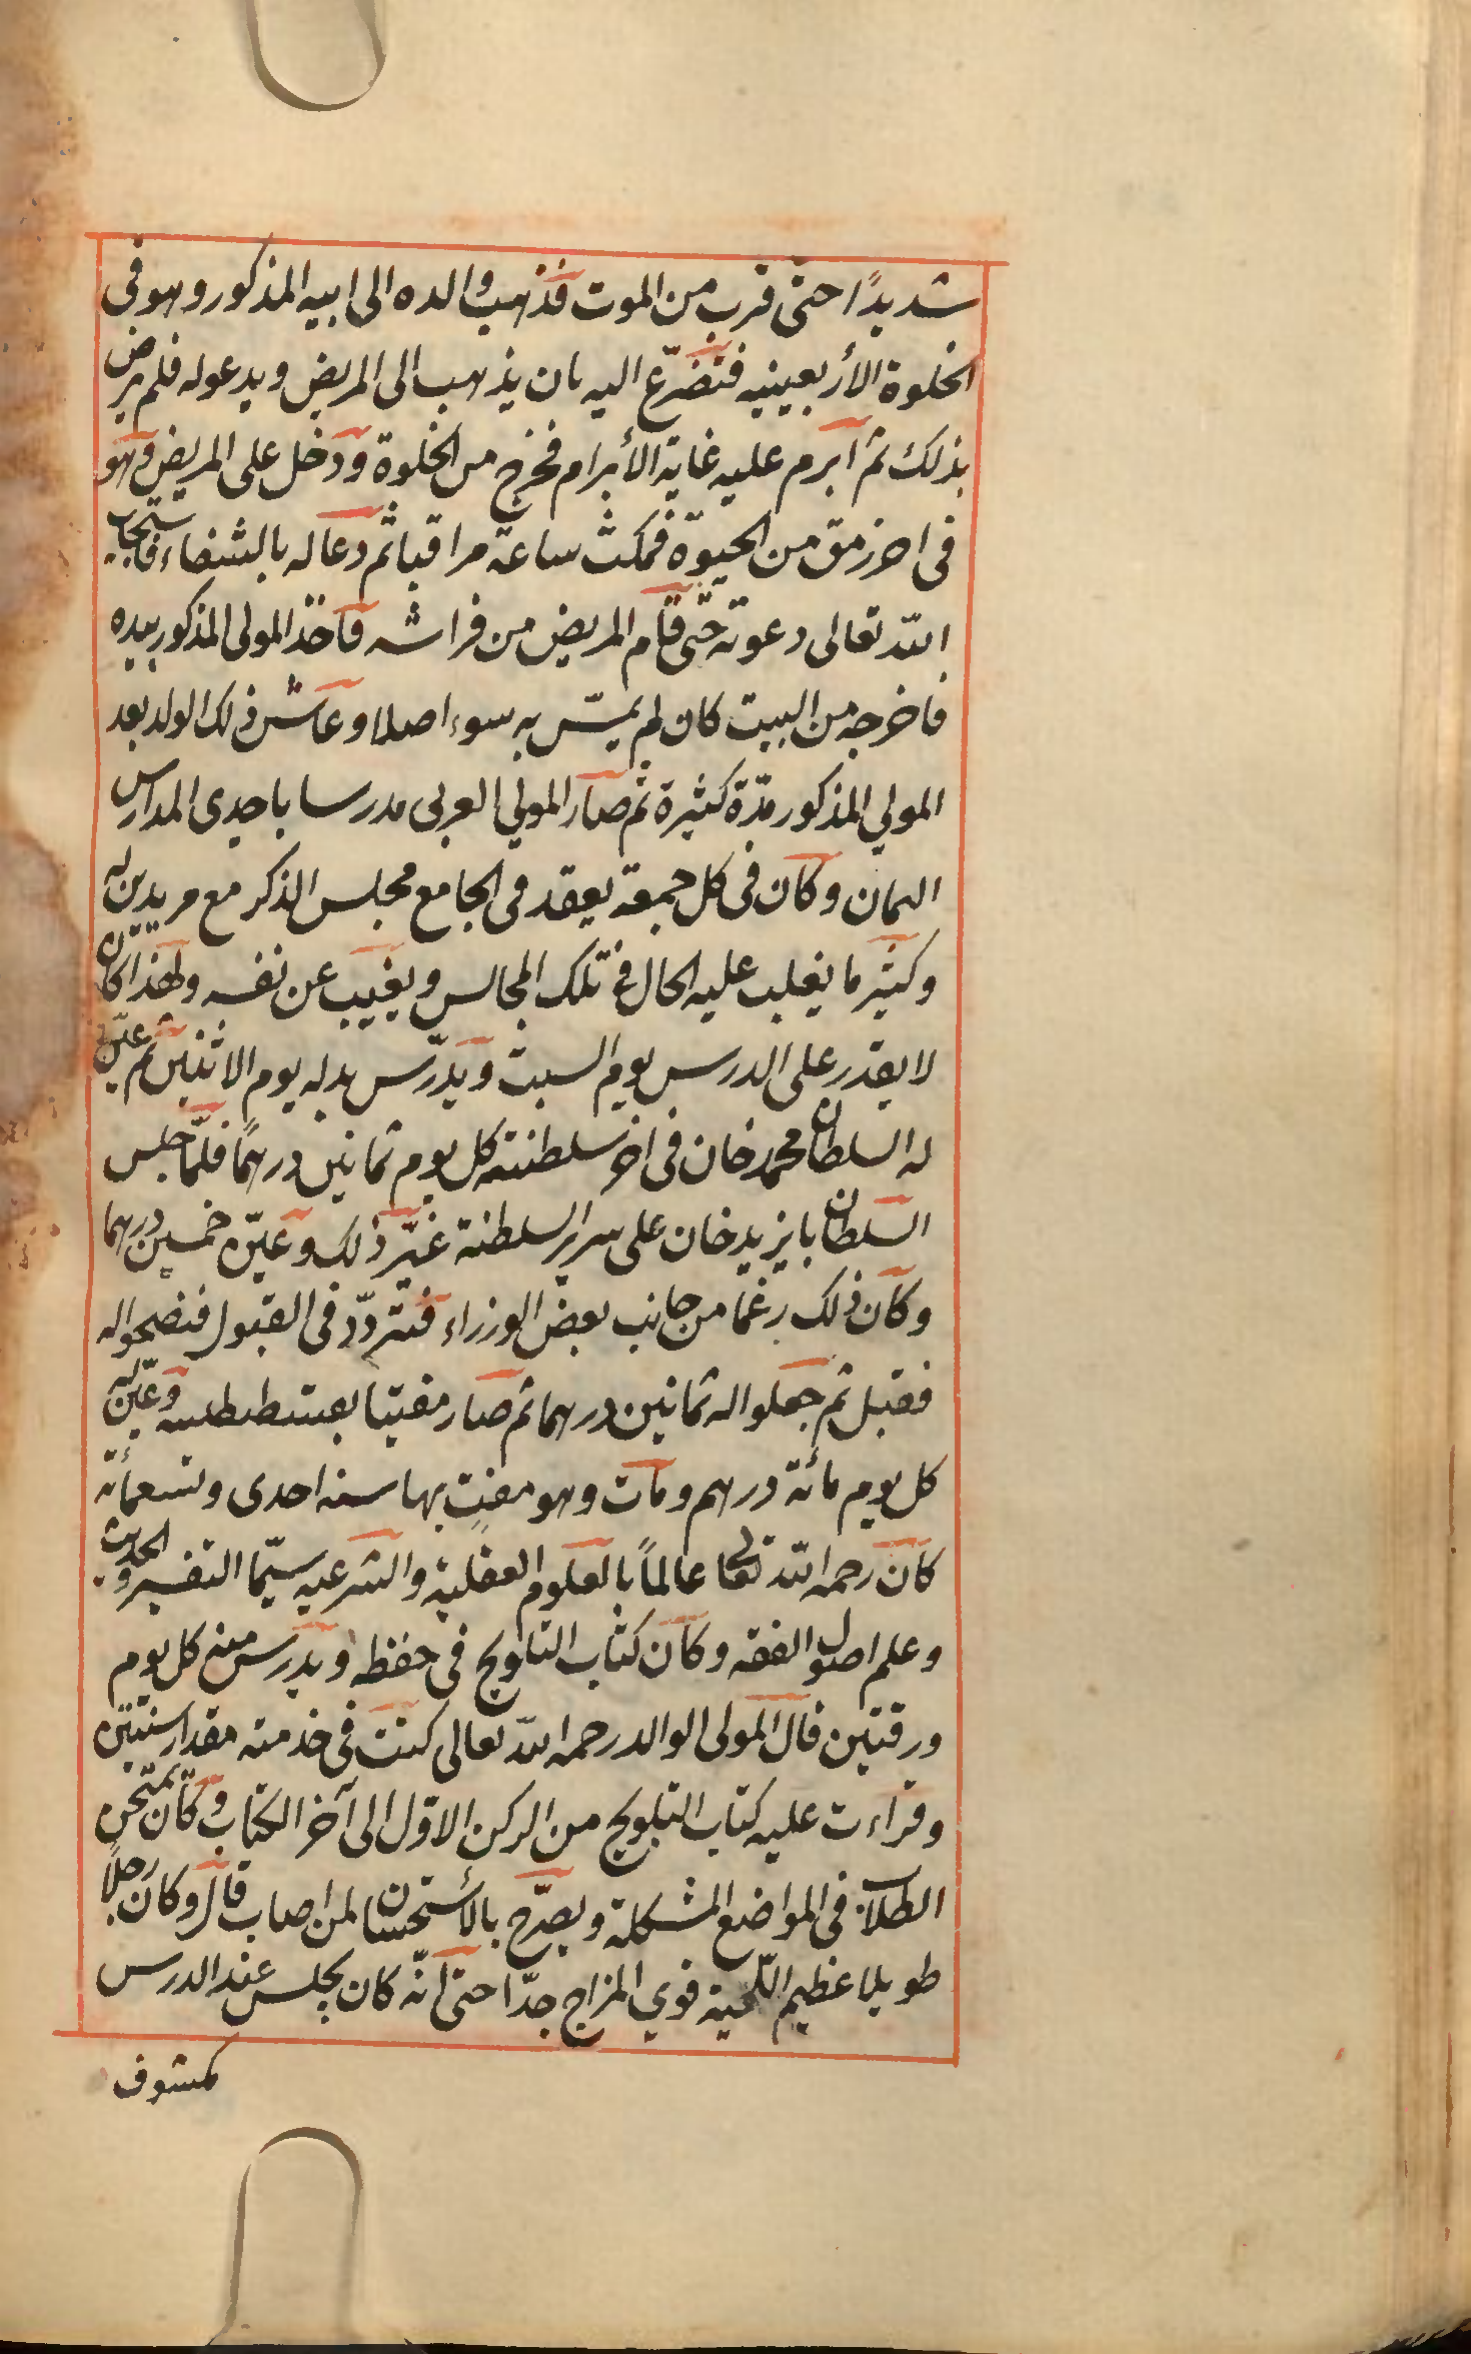 شديدًا حتى قرب من الموت فذهب والده الى ابيه المذكور وهو فى
الخلوة الأربعينيه فتضرّع اليه بان يذهب الى المريض ويدعوله فلم يرض
بذلك ثم ابرم عليه غاية الأبرام فخرج من الخلوة ودخل على المريض وهو
فى اخر رمق من الحيوة فمكث ساعة مراقبا ثم دعا له بالشفاء فاستجاب
الله تعالى دعوته حتّى قام المريض من فراشه فاخذ المولى المذكور بيده
فاخرجه من البيت كان لم يمسّ به سوء اصلا وعاش ذلك الولد بعد
المولي المذكور مدّة كثيرة ثم صار المولي العربى مدرسا باحدى المدارس
الثمان وكان فى كل جمعة يعقد فى الجامع مجلس الذكر مع مريدين له
وكثير ما يغلب عليه الحال فى تلك المجالس ويغيب عن نفسه ولهذا كان
لا يقدر على الدرس يوم السبت ويدرّس بدله يوم الاثنين ثم عيّن
له السلطان محمد خان فى اخر سلطنته كل يوم ثمانين درهمًا فلمّا جلس
السلطان بايزيد خان على سرير السلطنة غيّر ذلك وعيّن خمسين درهما
وكان ذلك رغما من جانب بعض الوزراء فتردّد فى القبول فنصحوا له
فقبل ثم جعلوا له ثمانين درهما ثم صار مفتيا بقسطنطنيه وعيّن له
كل يوم مائة درهم ومات وهو مفتٍ بها سنه احدى وتسعمأئة
كان رحمه الله تعالى عالماً بالعلوم العقلية والشرعيه سيّما التفسير والحديث
وعلم اصول الفقه وكان كتاب التلويح فى حفظه ويدرس منه كل يوم
ورقتين قال المولى الوالد رحمه الله تعالى كنت فى خدمته مقدار سنتين
وقراءت عليه كتاب التلويح من الركن الاول الى آخر الكتاب وكان يمتحن
الطلاب فى المواضع المشكلة ويصرّح بالأستحسان لمن اصاب قال وكان رجلًا
طويلا عظيم اللّحية قوي المزاج جدّا حتى انّه كان يجلس عند الدرس
مكشوف